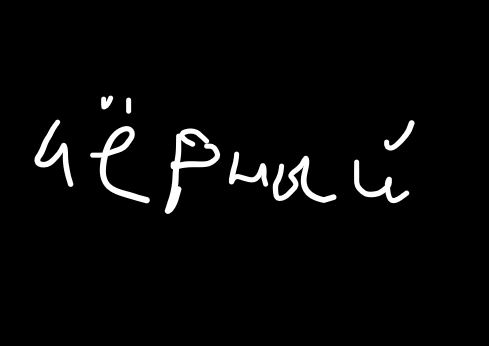 чёрный